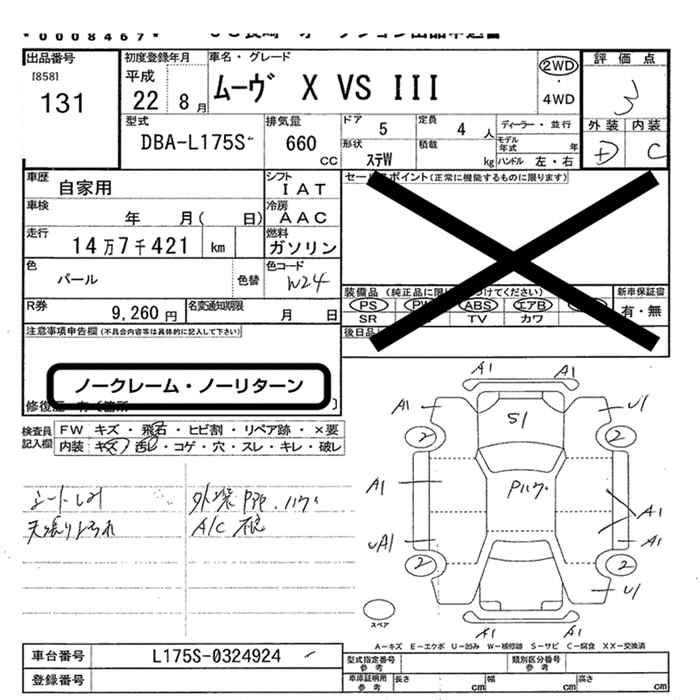 *0008467*
出品番号 初度登録年月 車名・グレード 2WD 評価点
[858] 平成 ムーヴ X VS III 3
131 22 8月 4WD
外装 内装
型式 排気量 ドア 5 定員 4人 ディーラー・並行 D C
DBA-L175S 660 モデル年式 年
CC 形状 ステW 積載 kg ハンドル 左・右
車歴 自家用 シフト IAT セールスポイント(正常に機能するものに限ります)
車検 年 月( 日) 冷房 AAC
走行 14万7千421 km 燃料 ガソリン
色 パール 色替 色コード W24
装備品 (純正品に限 つけてください) 新車保証書
R券 9,260円 名変通知期限 月 日 PS PW ABS エアB 有・無
SR TV カワ
注意事項申告欄(不具合内容等は具体的に記入して下さい) 後日品
ノークレーム・ノーリターン
修復歴 有 [箇所 ]
検査員記入欄 FW キズ・飛石・ヒビ割・リペア跡・×要
内装 キズ 汚レ・コゲ・穴・スレ・キレ・破レ
シートしみ 外装
A/C
A1 A1
A1 S1 U1
2 2
A1 Pハゲ A1
UA1 A1
2 2
U1
スペア A1 A1
A-キズ E-エクボ U-凹み W-補修跡 S-サビ C-腐食 XX-交換済
車台番号 L175S-0324924 型式指定番号参考 類別区分番号参考
登録番号 車庫証明用参考 長さ cm 幅 cm 高さ cm